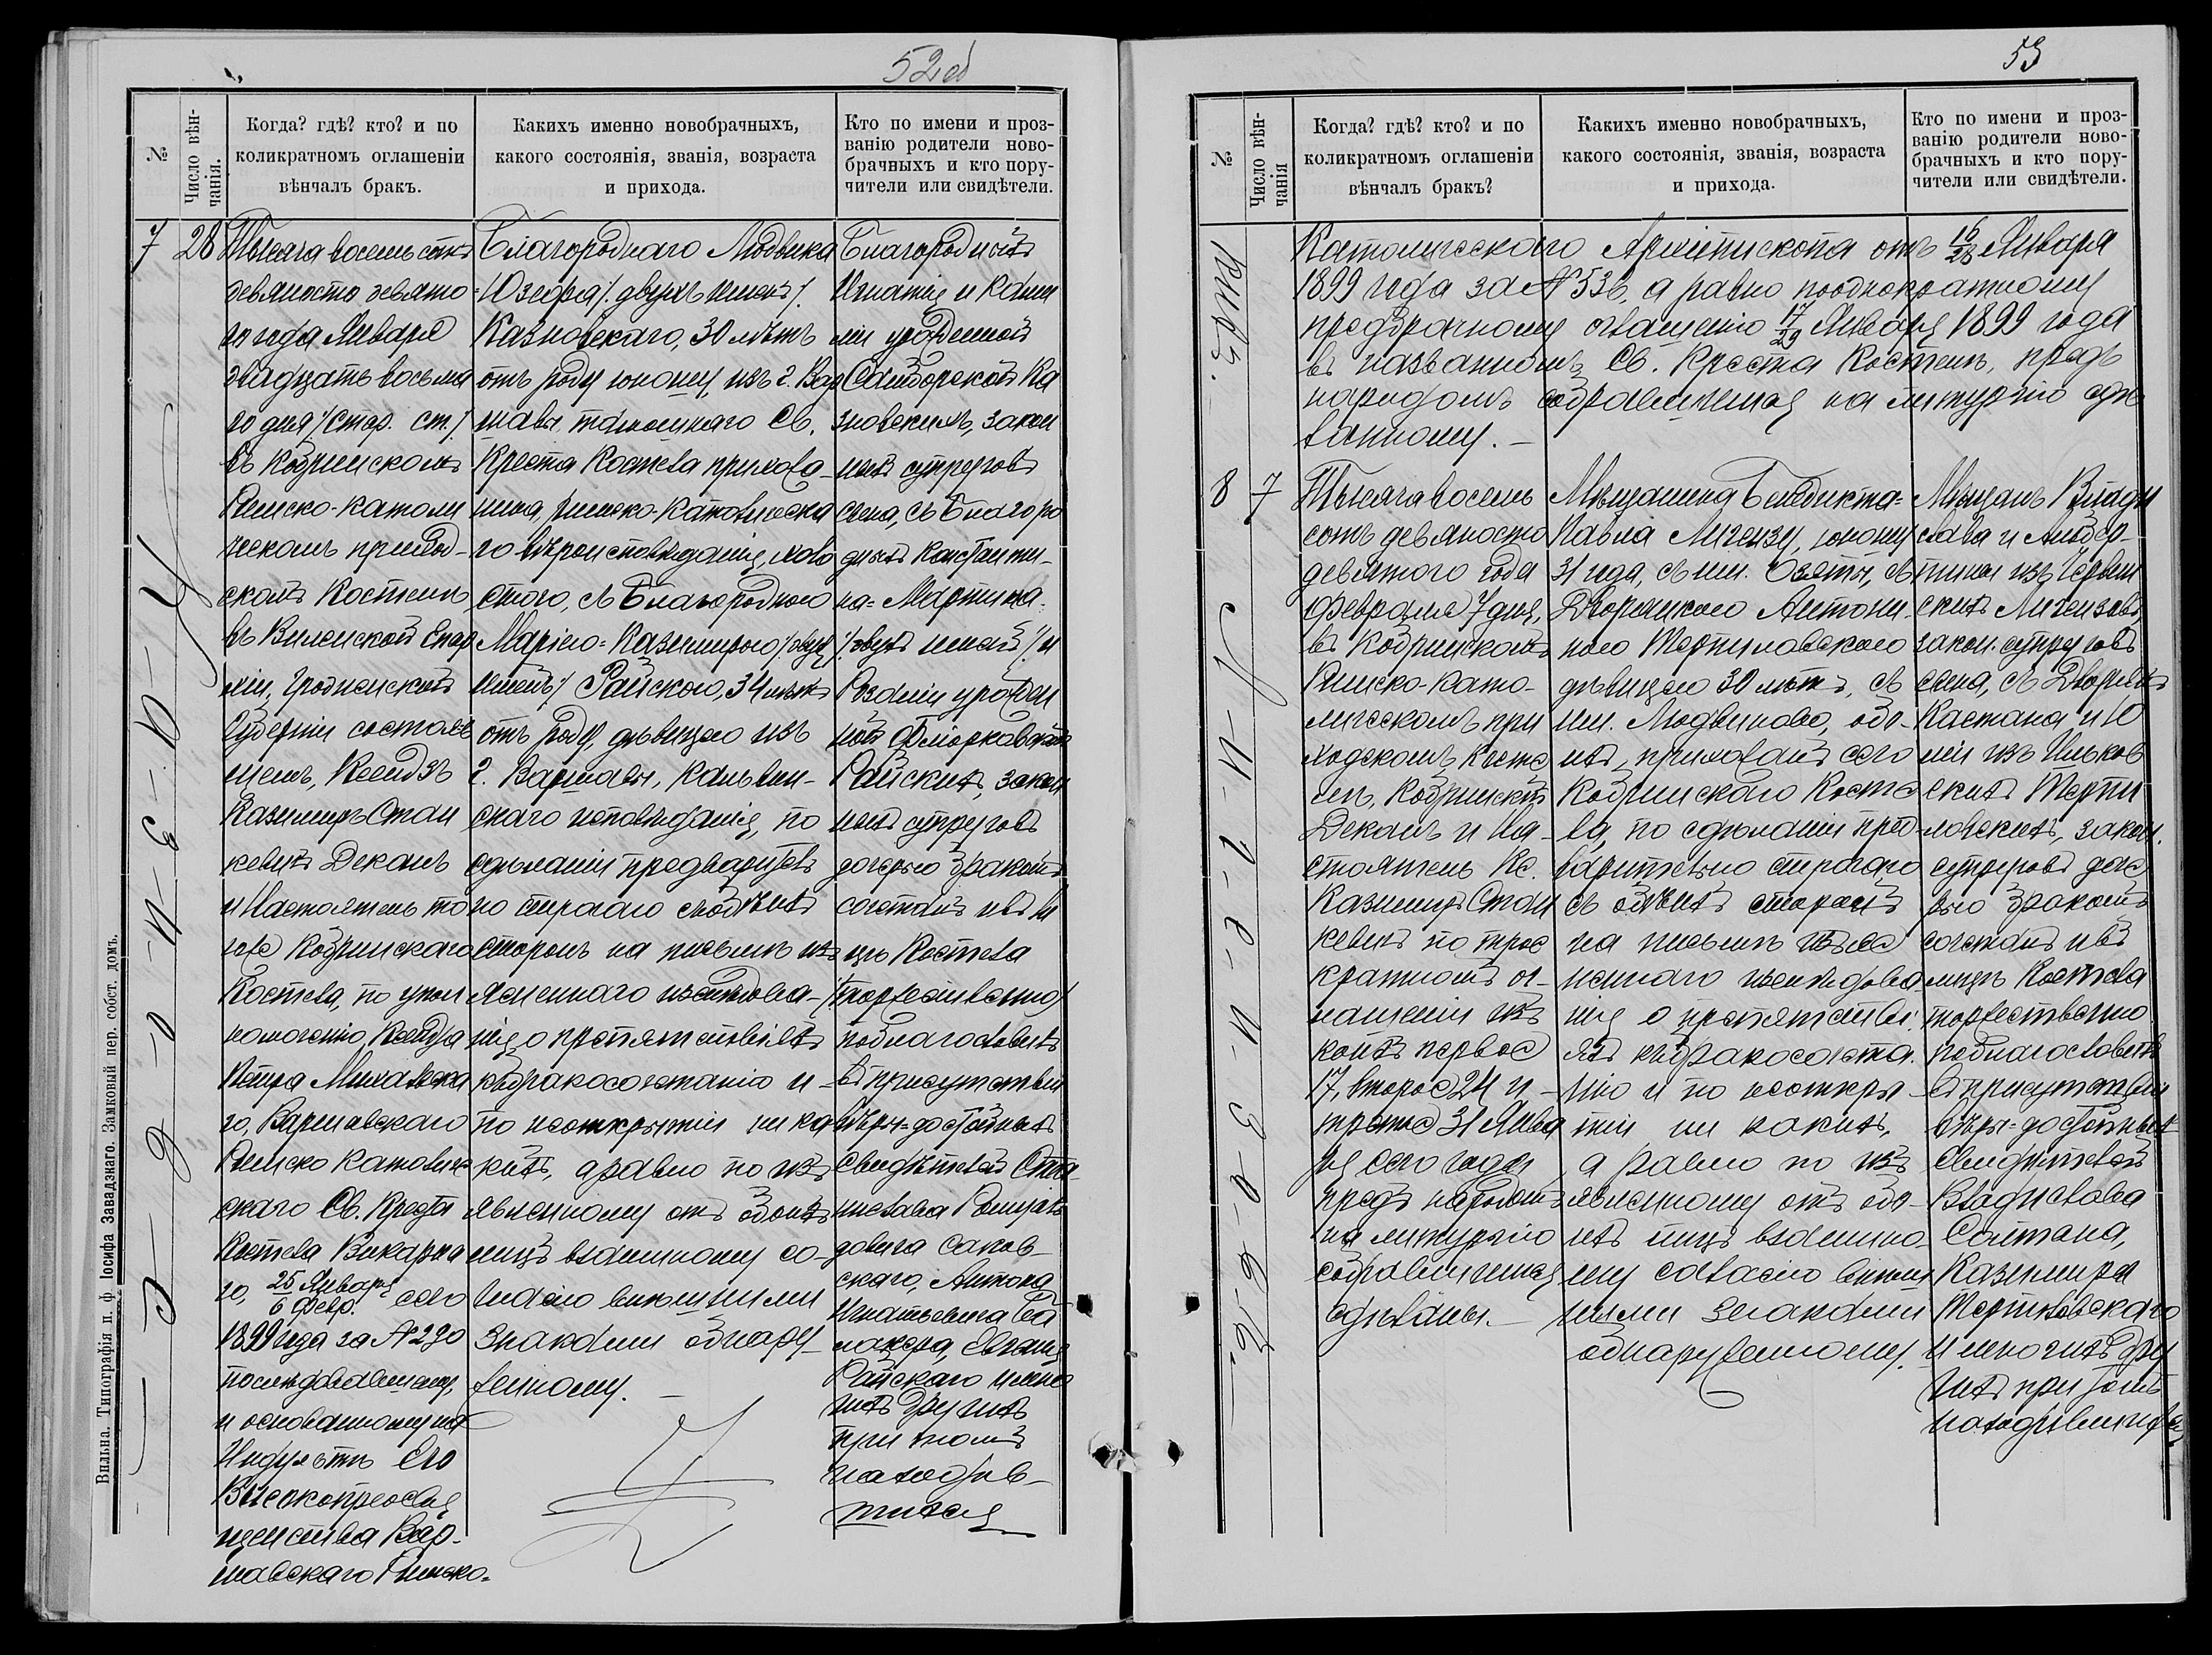 52об
№
Число вѣн-
чанія.
Когда? гдѣ? кто? и по
коликратномъ оглашеніи
вѣнчалъ бракъ.
Какихъ именно новобрачныхъ,
какого состоянія, званія, возраста
и прихода.
Кто по имени и проз-
ванію родители ново-
брачныхъ и кто пору-
чители или свидѣтели.
7
28
Тысяча восемь сотъ
девяносто девято
го года Января
двадцать восьма
го дня /:Стар. ст.:/
въ Кобринскомъ
Римско-католи
ческомъ приход-
скомъ Костелѣ
въ Виленской Епар
хіи, Гродненской
Губерніи состояв
шемъ, Ксендзъ
Казимиръ Стан
кевичъ Деканъ
и Настоятель то
гоже Кобринскаго
Костела, по упол
номоченію, Ксендза
Петра Михальска
го, Варшавскаго
Римско Католиче
скаго Св. Креста
Костела Викарна
го, 25 Января / 6 февр. сего
1899 года за № 290
послѣдовавшему,
и основанному на
Индультѣ Его
Высокопреосвя
щенства Вар-
шавскаго Римско-
Благороднаго Людвика
-Юзефа /:двухъ именъ:/
Казновскаго, 30 лѣтъ
отъ роду юношу, изъ г. Вар
шавы, тамошняго Св.
Креста Костела прихожа-
нина, римско-католическа
го вѣроисповѣданія, холо
стого, съ Благородною
Маріею-Казимирою /:двухъ
именъ:/ Райскою, 34 лѣтъ
отъ роду, дѣвицею изъ
г. Варшавы, Кальвин-
скаго исповѣданія, по
сдѣланіи предварительно
но строгаго съ обѣихъ
сторонъ на письмѣ изъ
ясненнаго изслѣдова-
нія о препятствіяхъ
къ бракосочетанію и
по неоткрытіи ни ка
кихъ, а равно по изъ
явленному отъ обоихъ
лицъ взаимному со-
гласію внѣшними
знаками обнару-
женному. —
Благородныхъ
Игнатія и Ками
ліи урожденной
Самборской Ка
зновскихъ, закон
ныхъ супруговъ
сына, съ Благоро
дныхъ Константи-
на-Мартина
/:двухъ именъ:/ и
Розаліи урожден
ной Фіорковской
Райскихъ, закон
ныхъ супруговъ
дочерью бракомъ
сочеталъ и въ ли
цѣ Костела
/:торжественно:/
поблагословилъ
въ присутствіи
вѣры-достойныхъ
Свидѣтелей Ста-
нислава
довича Саков-
скаго, Антона
Игнатьевича
Евгенія
Райскаго и мно
гихъ другихъ
при томъ
находив-
шихся
Вильна. Типографія п. ф. Іосифа Завадзкаго. Замковый пер. собст. домъ.
53
№
Число вѣн-
чанія
Когда? гдѣ? кто? и по
коликратномъ оглашеніи
вѣнчалъ бракъ?
Какихъ именно новобрачныхъ,
какого состоянія, званія, возраста
и прихода.
Кто по имени и проз-
ванію родители ново-
брачныхъ и кто пору-
чители или свидѣтели.
Католическаго Архіепископа отъ 16/28 Января
1899 года за № 536, а равно пооднократному
предбрачному оглашенію 17/29 Января 1899 года
въ названномъ Св. Креста Костелѣ, предъ
народомъ собравшимся на литургію сдѣ
ланному. —
8
7
Тысяча восемь
сотъ девяносто
девятого года
Февраля 7 дня,
въ Кобринскомъ
Римско-като-
лическомъ при
ходскомъ Косте
лѣ, Кобринскій
Деканъ и На-
стоятель Кс.
Казимиръ Стан
кевичъ по трое
кратномъ ог-
лашеніи изъ
коихъ первое
17, второе 24 и
третье 31 Янва
ря сего года
предъ народомъ
на литургію
собравшимся
сдѣланы. —
Мѣщанина Бенедикта-
Павла Лигензу, юношу
31 года, съ им. Озяты, съ
Дворянкою Антони-
ною Тертиловскою
дѣвицею 30 лѣтъ, съ
им. Людвиново, обо-
ихъ, прихожанъ сего
Кобринскаго Косте
ла, по сдѣланіи пред-
варительно строгаго
съ обѣихъ сторонъ
на письмѣ изъяс
неннаго изслѣдова-
нія о препятстві-
яхъ къ бракосочета-
нію и по неоткры-
тіи ни какихъ,
а равно по изъ
явленному отъ обо-
ихъ лицъ взаимно-
му согласію внѣш
ними знаками
обнаруженному.
Мѣщанъ Влади
слава и Альбер-
тины изъ
скихъ Лигензовъ,
закон. супруговъ
сына, съ Дворянъ
Каетана и Ю
ліи изъ
скихъ Терти
ловскихъ, закон.
супруговъ доче
рью бракомъ
сочеталъ и въ
лицѣ Костела
торжественно
поблагословилъ
въ присутствіи
вѣры-достойныхъ
Свидѣтелей
Владислава
Солтана,
Казимира
Тертиловскаго
и многихъ дру
гихъ при томъ
находившихся